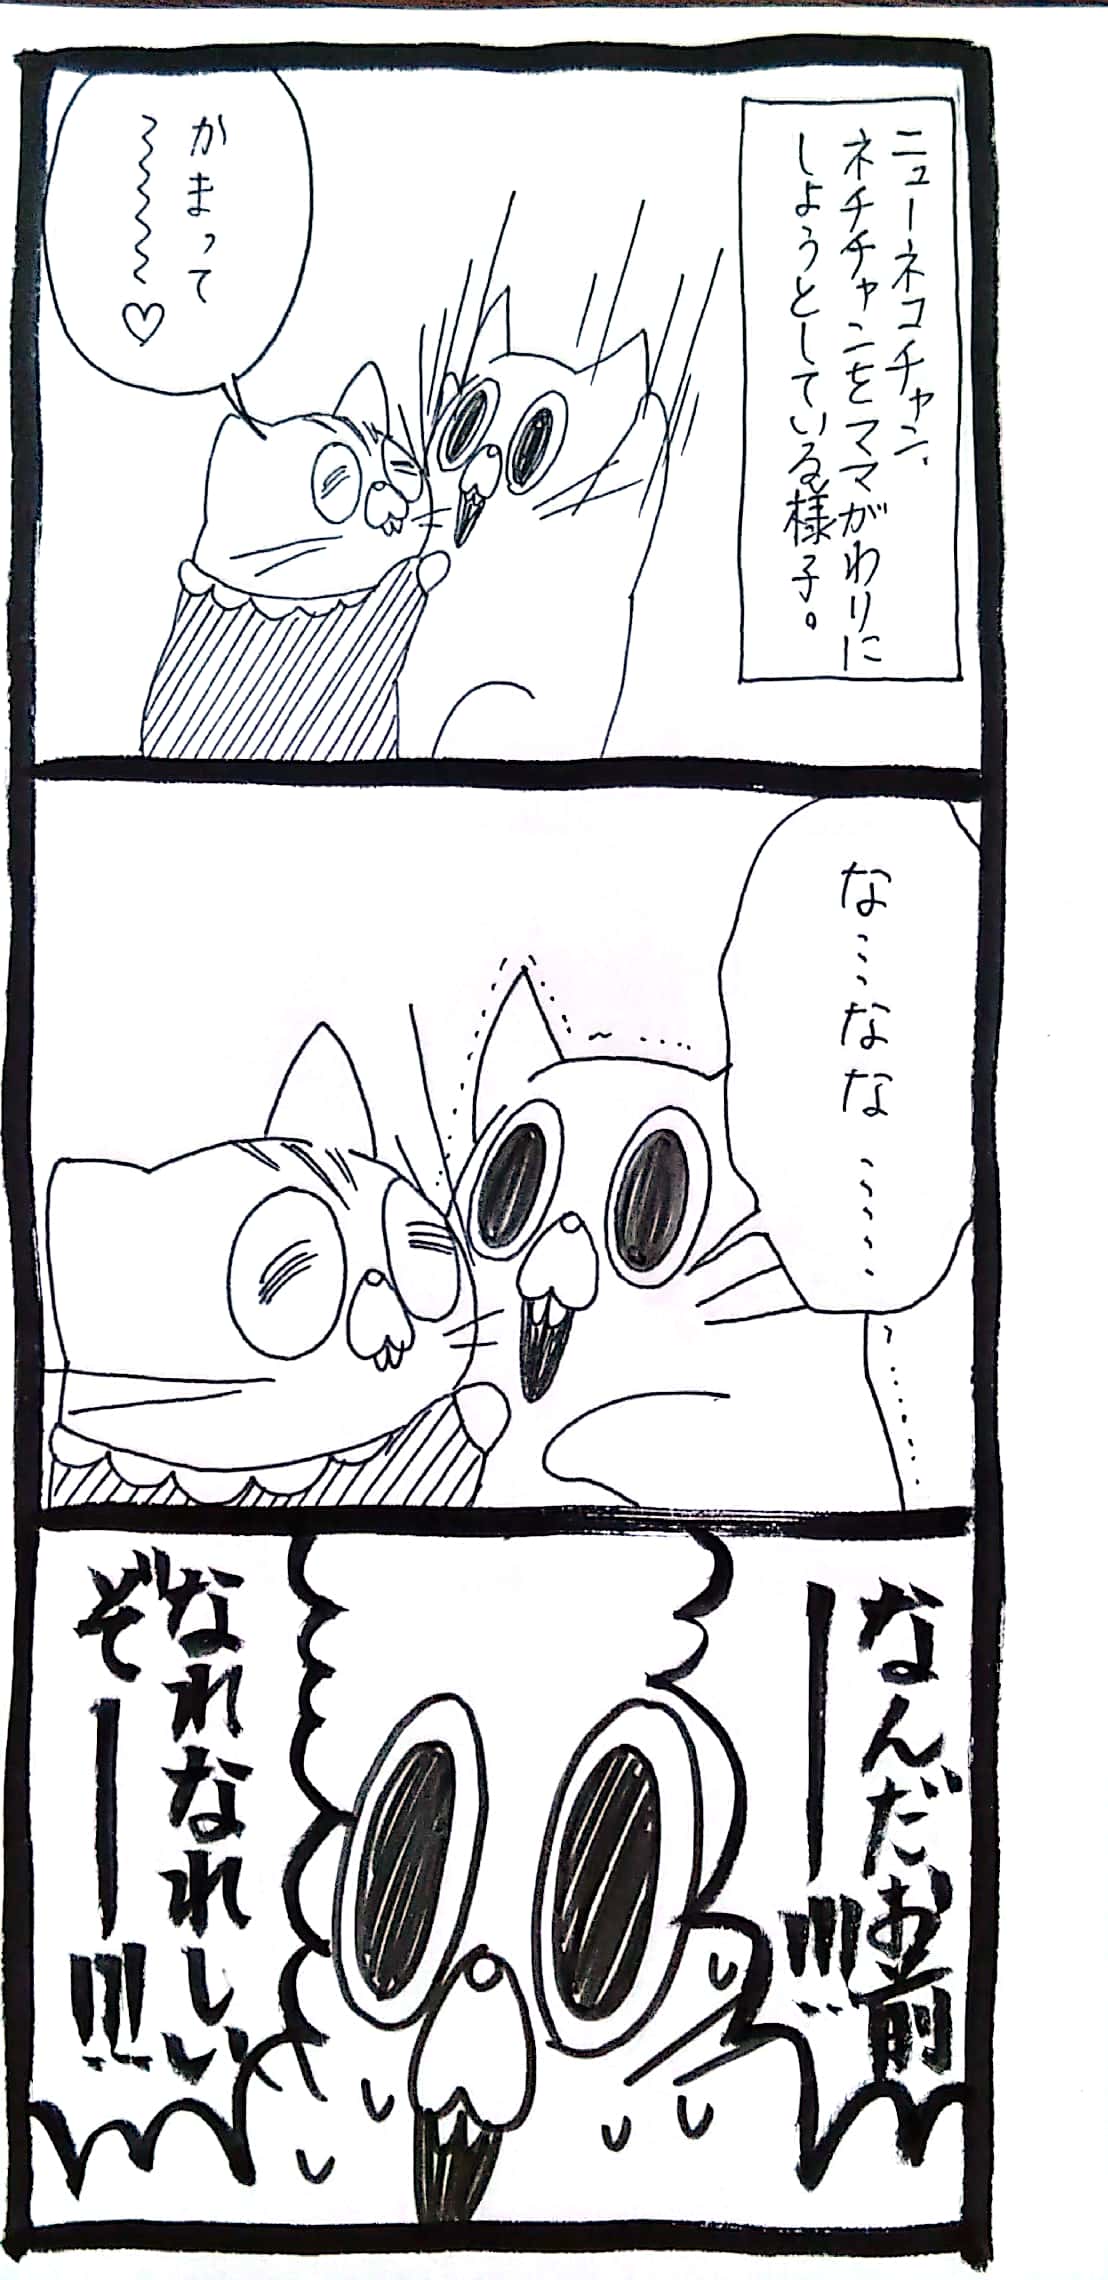 ニューネコチャン、
ネチチャンをママがわりに
しようとしている様子。
かまって
〜〜〜〜♡
な…なな……
なんだお前
ー!!!
なれなれしい
ぞー!!!